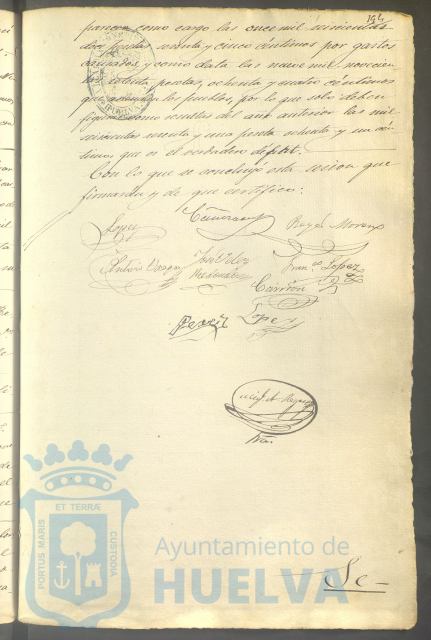 194
parecen como cargo las once mil seiscientas
dos pesetas setenta y cinco céntimos por gastos
causados, y como data las nueve mil novecien
tas cuarenta pesetas, ochenta y cuatro céntimos
que los fondos, por lo que solo deben
figurar como resultas del año anterior las mil
seiscientas sesenta y una peseta ochenta y un cén
timos que es el verdadero deficit.
Con lo que se concluyó esta sesion que
firmarán y de que certifico:
Lopez
Rey Moreno
Antonio Vargas
Hernandez
Fran.co Lopez
Carrion
Perez
Lopez
Srio.
ET TERRÆ
PORTUS MARIS
CUSTODIA
Ayuntamiento de
HUELVA
Se-